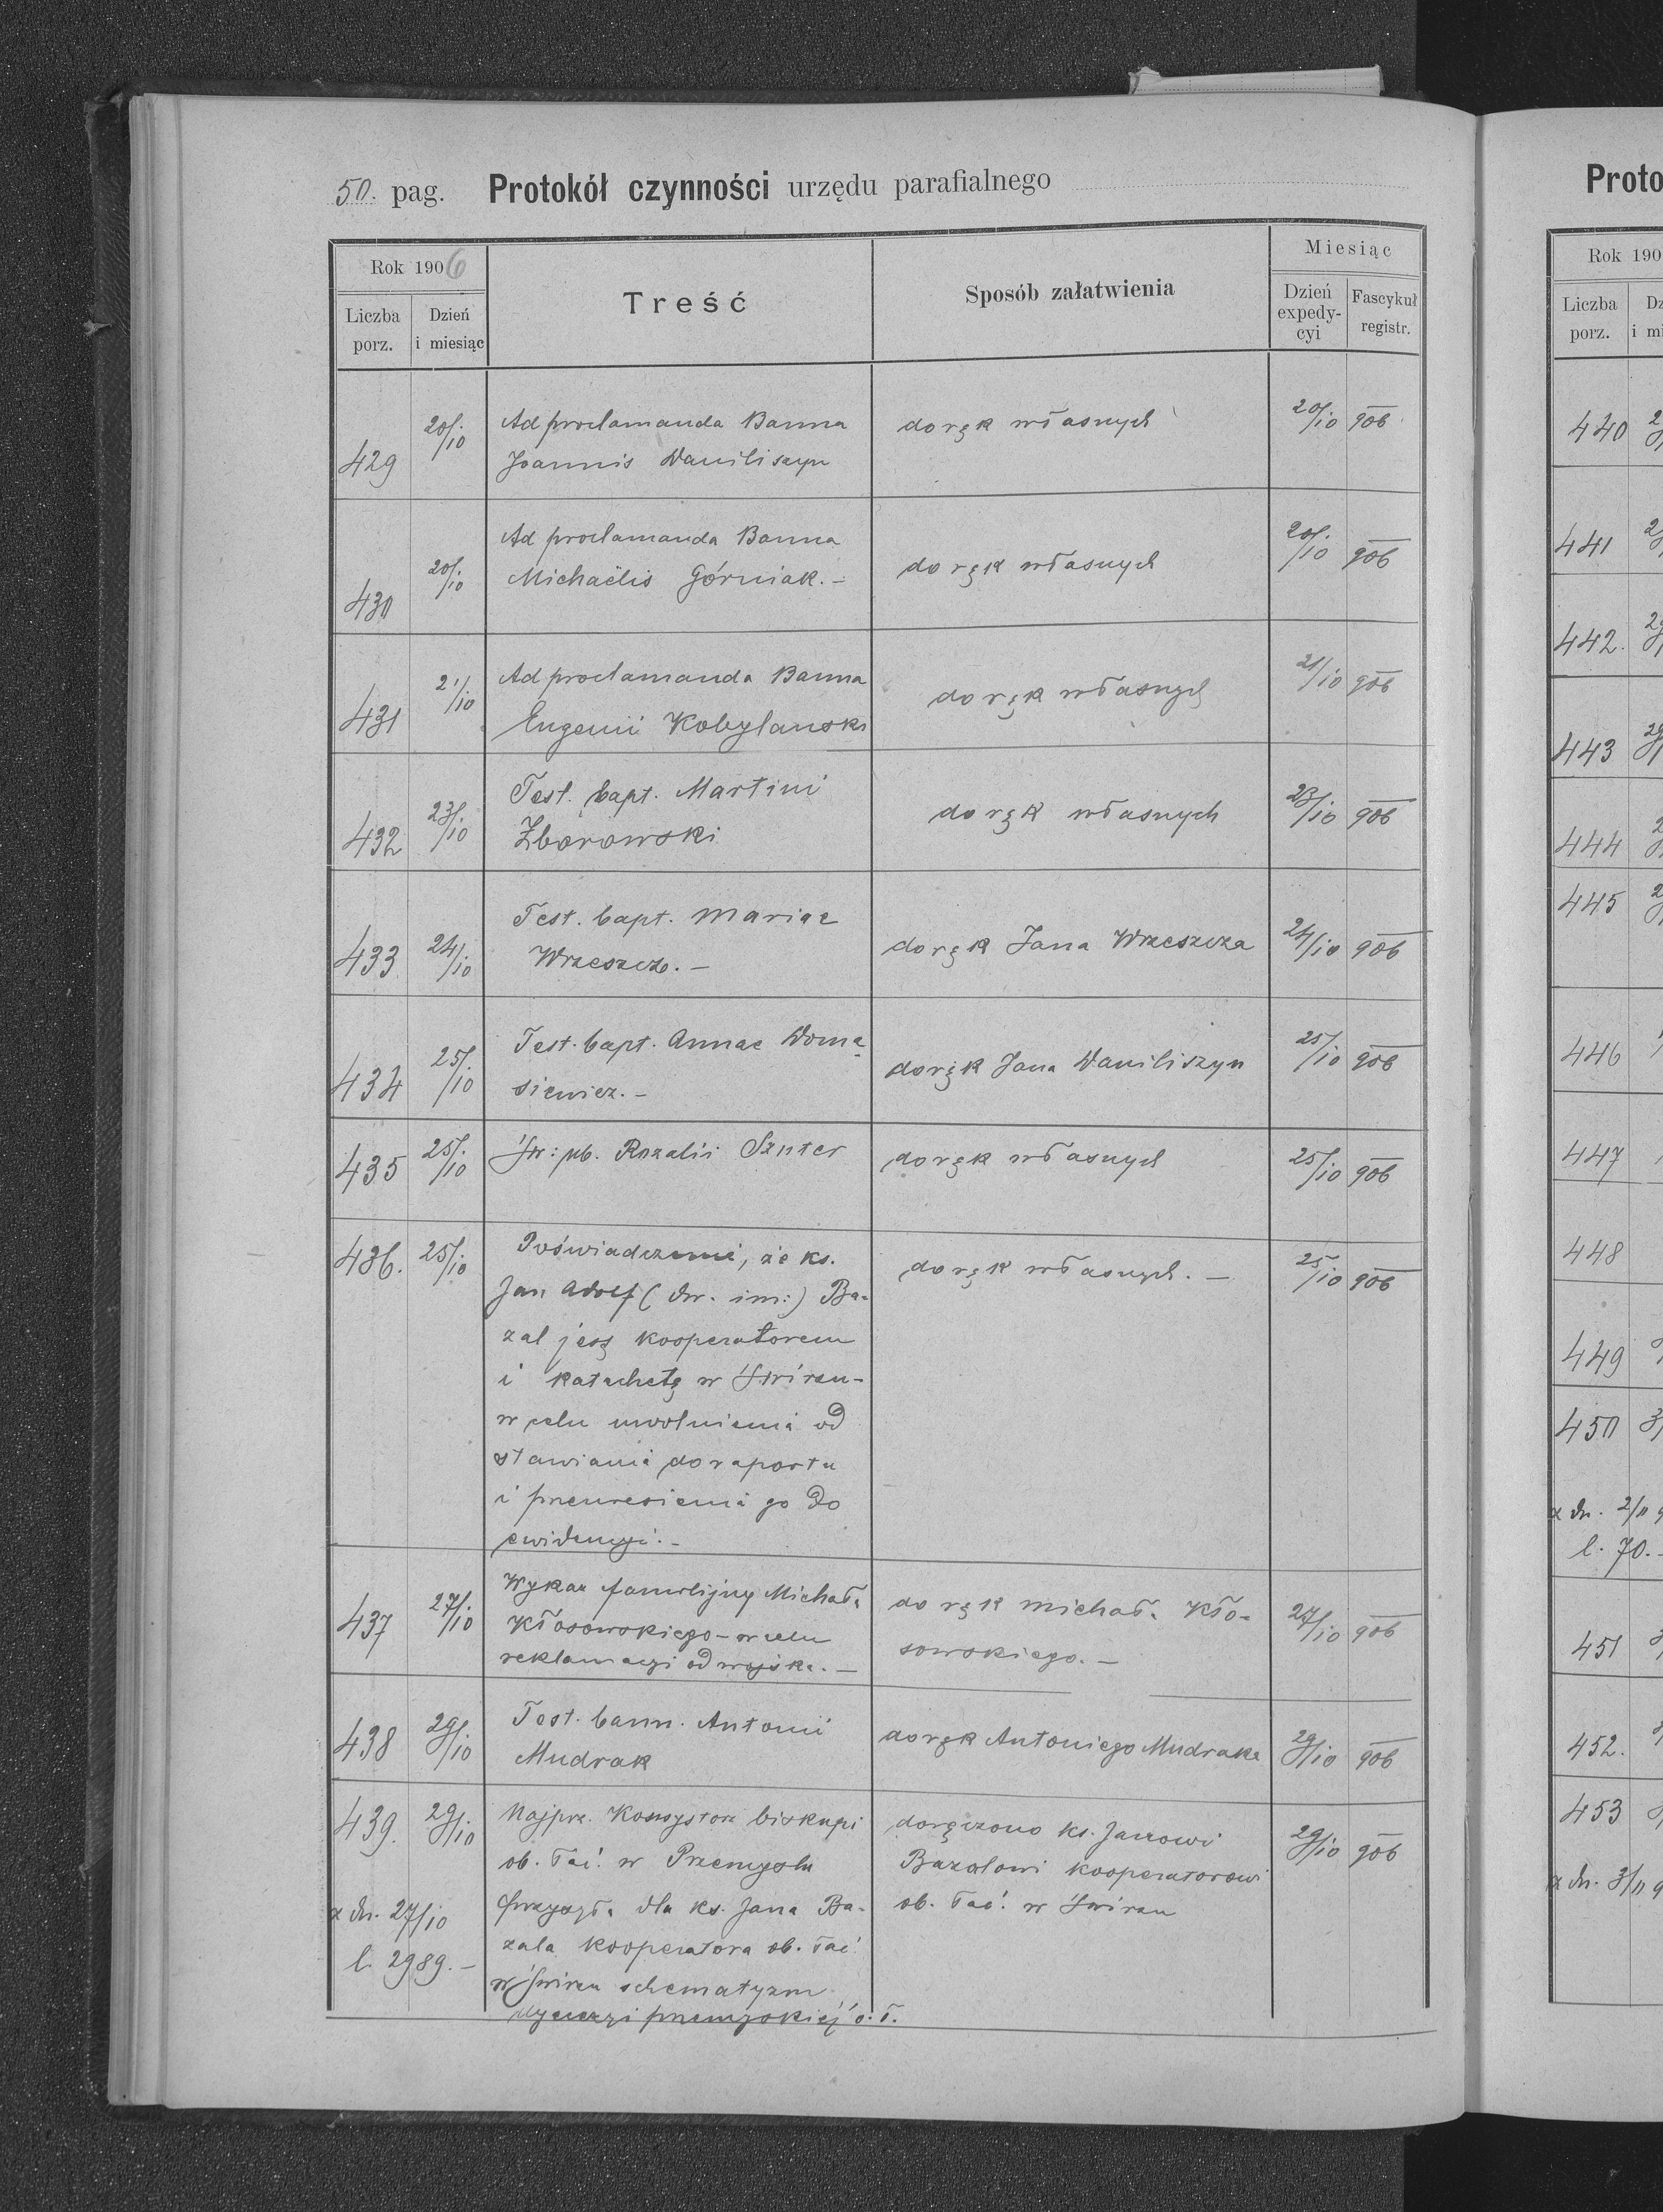 50. pag. Protokół czynności urzędu parafialnego
Rok 1906
Liczba porz.
Dzień i miesiąc
Treść
Sposób załatwienia
Miesiąc
Dzień expedycyi
Fascykuł registr.
429 20/10 Ad proclamanda Banna do rąk własnych 20/10 906
Joannis Daniliszyn
430 20/10 Ad proclamanda Banna do rąk własnych 20/10 906
Michaëlis Górniak. –
431 21/10 Ad proclamanda Banna do rąk własnych 21/10 906
Eugenii Kobylanski
432 23/10 Test. bapt. Martini do rąk własnych 23/10 906
Zborowski
433 24/10 Test. bapt. Mariae do rąk Jana Wrzeszcza 24/10 906
Wrzeszcz. –
434 25/10 Test. bapt. Annae Doma- do rąk Jana Daniliszyn 25/10 906
siewicz. –
435 25/10 Św: ub. Rozalii Sznter do rąk własnych 25/10 906
436. 25/10 Poświadczenie, że ks. do rąk własnych. – 25/10 906
Jan Adolf (dw. im:) Ba-
zal jest kooperatorem
i katechetą w Świrzu-
w celu uwolnienia od
stawiania do raportu
i przeniesienia go do
ewidencyi. –
437 27/10 Wykaz familijny Michała do rąk Michała Kło- 27/10 906
Kłosowskiego – w celu sowskiego. –
reklamacyi od wojska. –
438 29/10 Test. bann. Antonii do rąk Antoniego Mudraka 29/10 906
Mudrak
439. 29/10 Najprz. Konsystorz biskupi doręczono ks. Janowi 29/10 906
ob. łać. w Przemyślu Bazalowi kooperatorowi
z dn. 27/10 przysyła dla ks. Jana Ba- ob. łać. w Świrzu
l. 2989. – zala kooperatora ob. łać.
w Świrzu schematyzm
dyecezyi przemyskiej o. ł.
Proto
Rok 190
Liczba porz.
440
441
442.
443
444
445
446
447
448
449
450
z dn. 2/11
l. 70. –
451
452.
453
z dn. 3/11